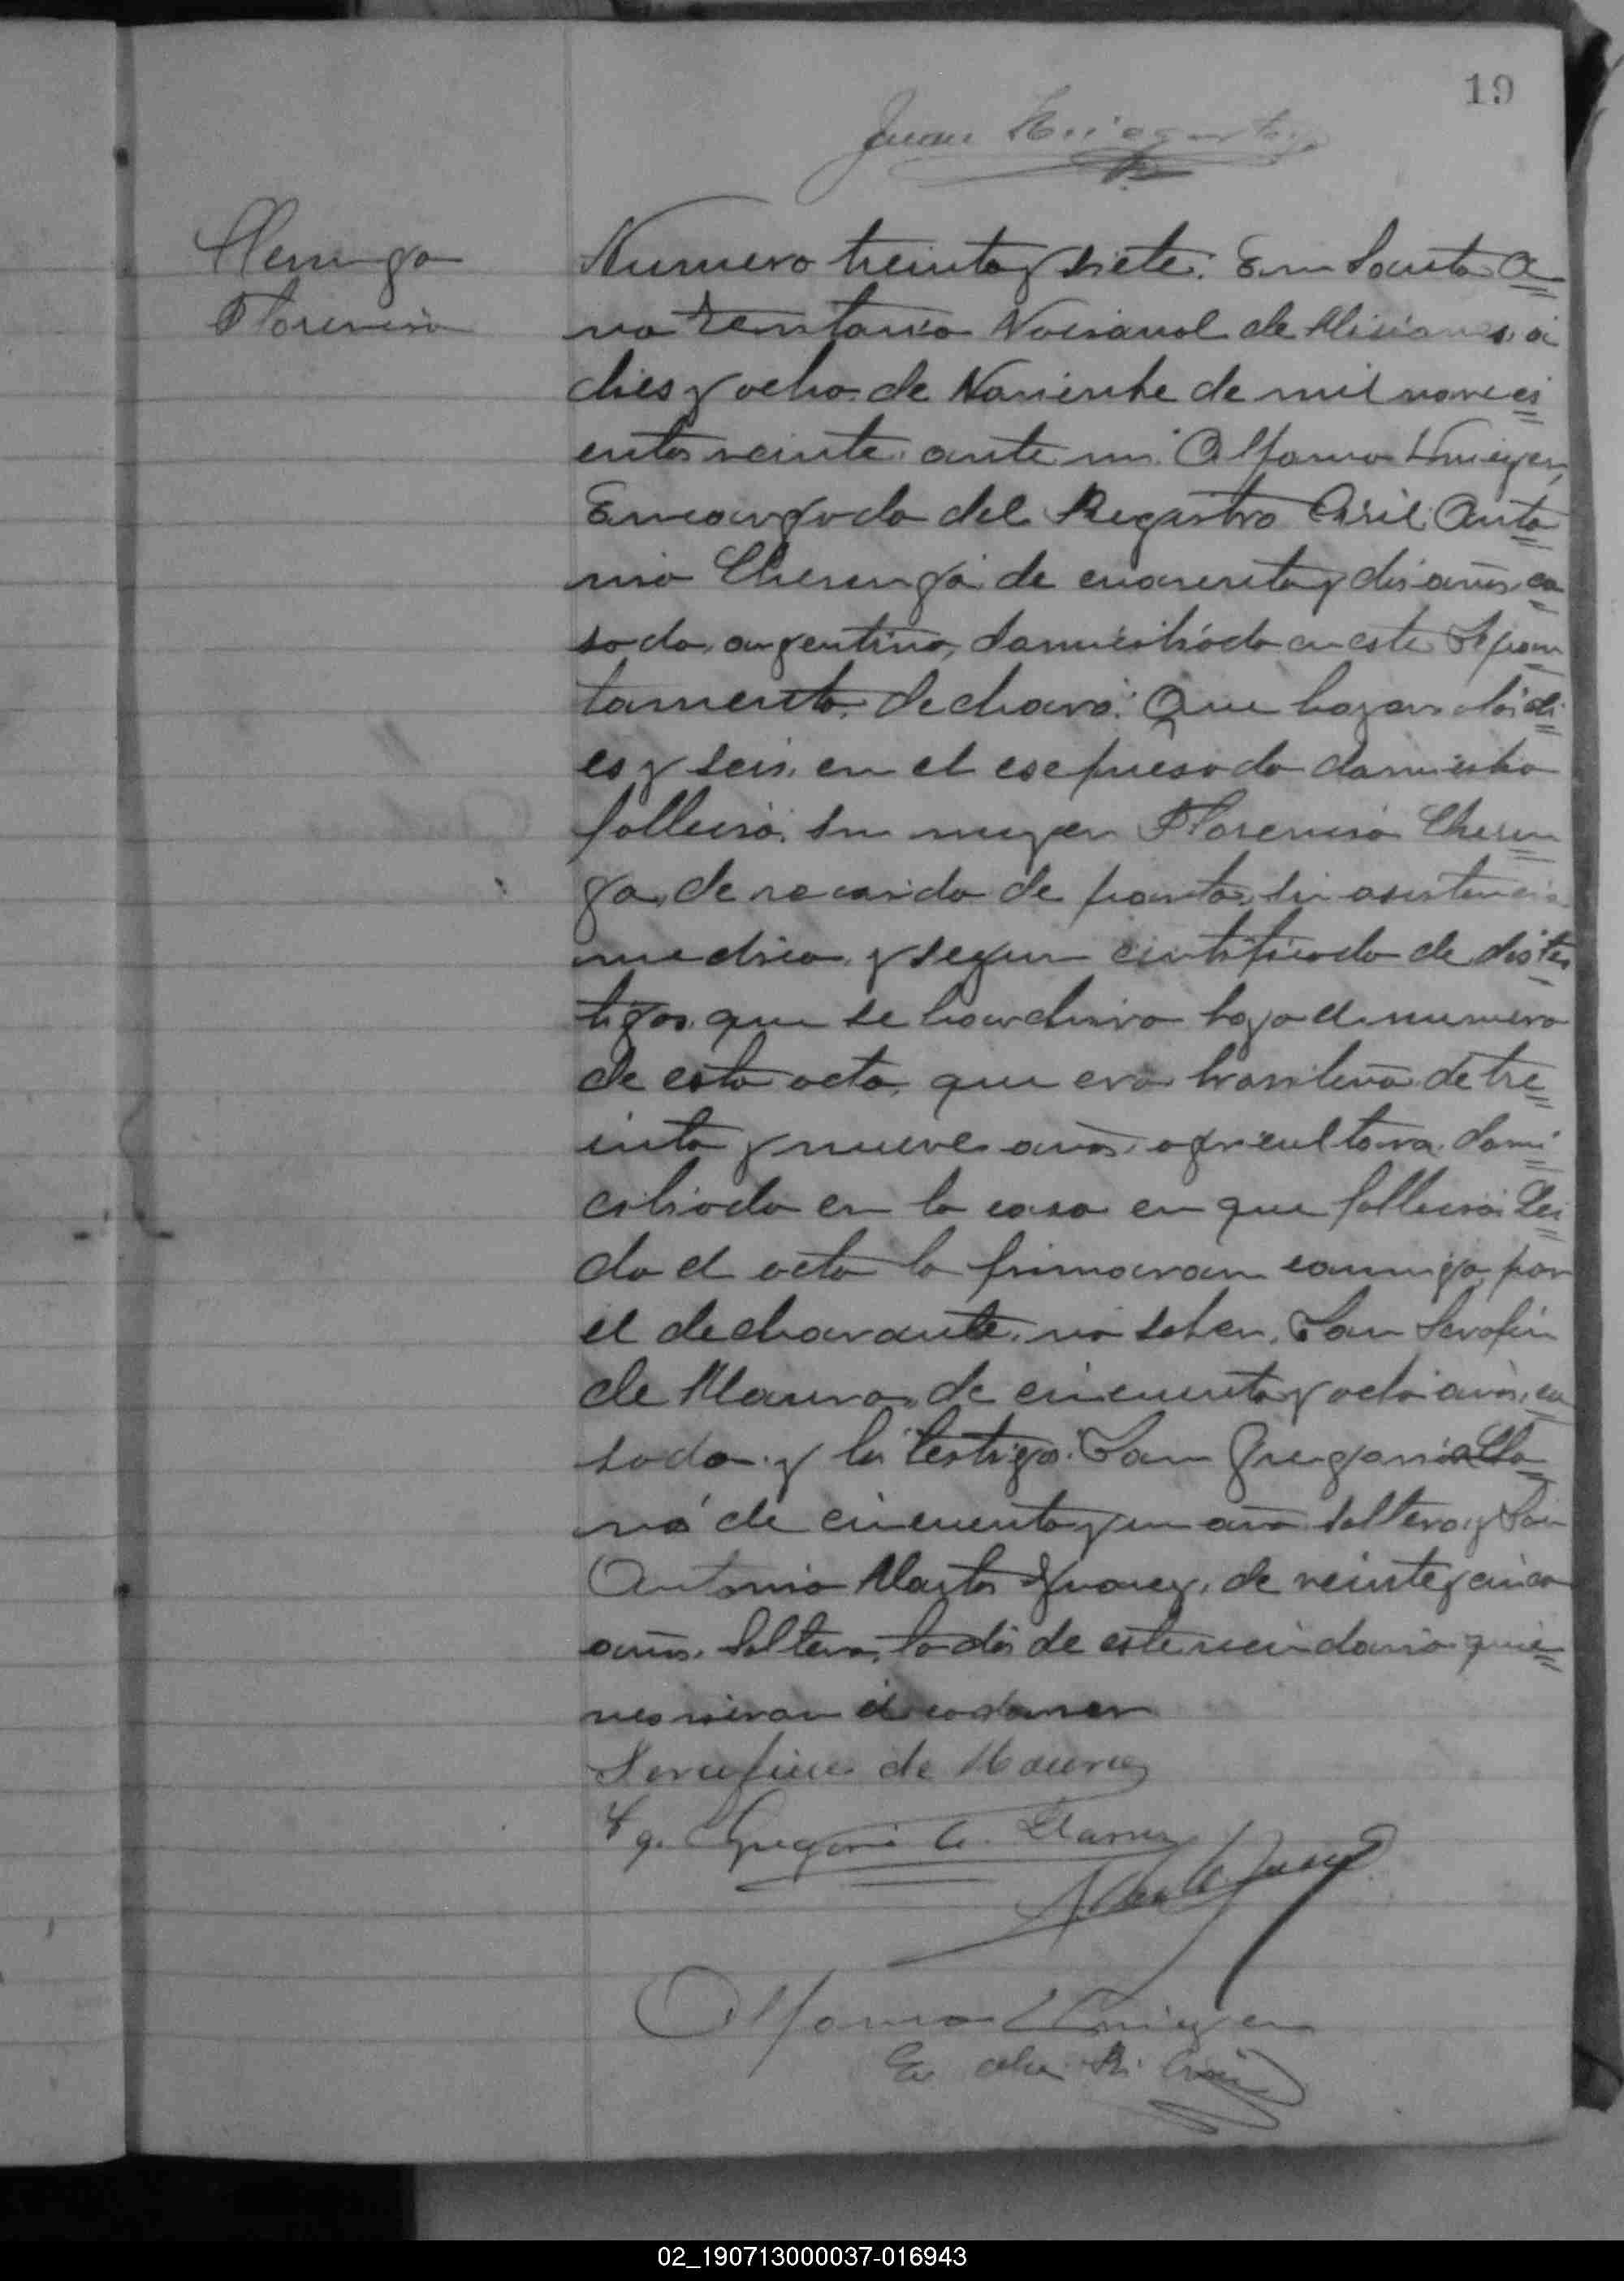 19
Juan
Cherunga
Florencia
Numero treinta y siete. En Santa A=
na Territorio Nacional de Misiones, á
dies y ocho de Noviembre de mil noveci=
entos veinte, ante mi Alfonso
Encargado del Registro Civil, Anto=
nio Cherunga, de cuarenta y dos años, ca=
sado, argentino, domiciliado en este Depar=
tamento, declaró: Que hoy los di=
es y seis, en el esepresado domicilio
fallecio, su mujer Florencia Cherun=
ga, de recaida de parto, sin asistencia
medica y segun certificado de dos tes=
tigos que se harchiva bajo el numero
de esta acta, que era brasilena de tre=
inta y nueve anos, agricultora, domi=
ciliada en la casa en que fallecio. Lei=
da el acta la firmaron conmigo, por
el declarante, no saber, Don Serafin
de Moura, de cincuenta y ocho anos, ca=
sado y los testigos: Don Gregorio Lla=
no de cincuenta y un ano soltero, y Don
Antonio de veinte y cinco
anos, Soltero, todos de este vecindario quie=
nes vieron el cadaver
Serafin de Moura
Gregorio
Alfonso
02_190713000037-016943